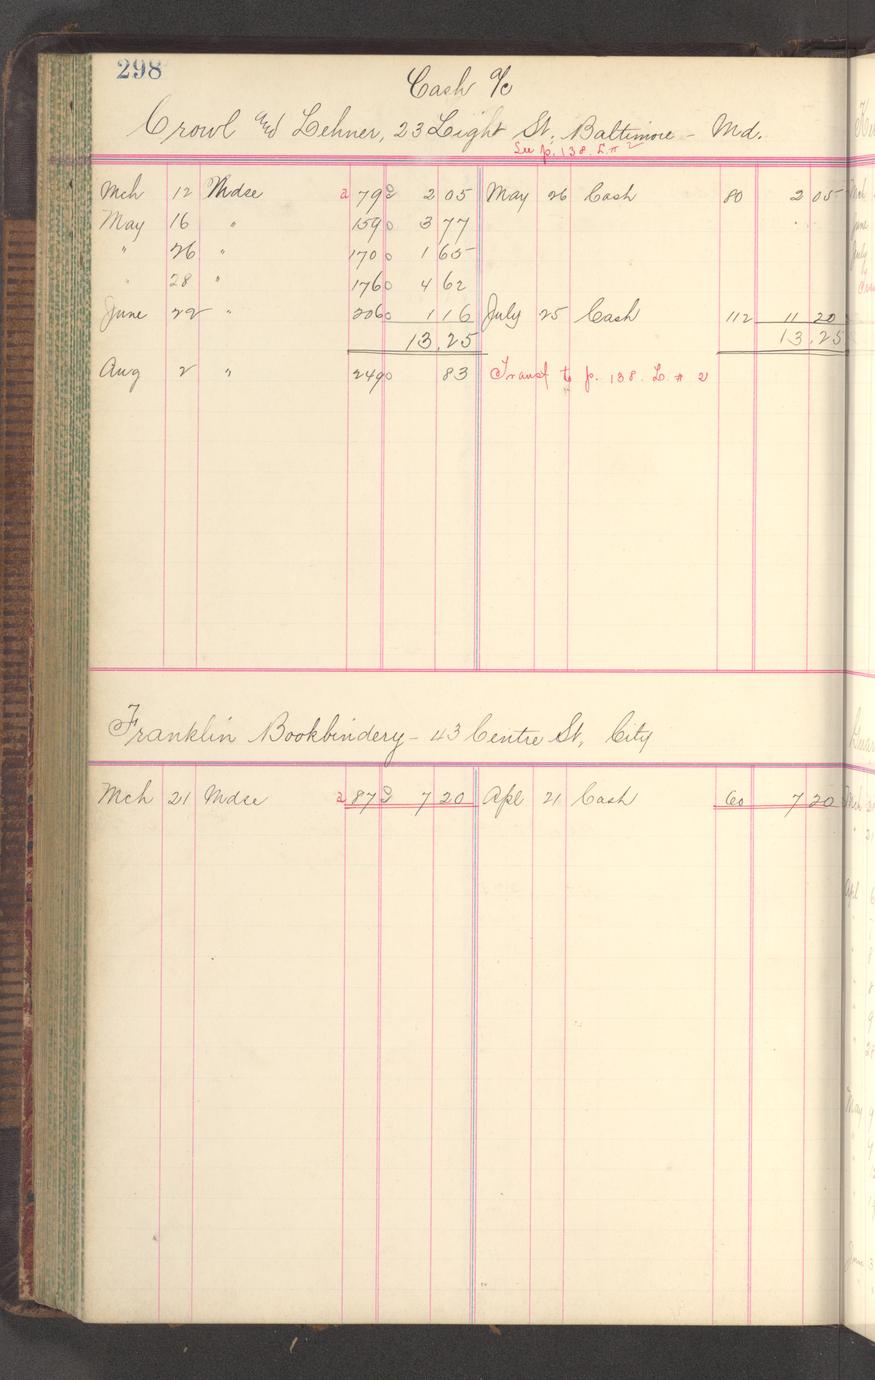 298
Cash a/c
Crowl and Lehner, 23 Light St, Baltimore - Md.
See p. 138. L. # 2
Mch 12 Mdse a 79 2 05 May 26 Cash 80 2 05
May 16 " 159 0 3 77
" 26 " 170 0 1 65
" 28 " 176 0 4 62
June 22 " 206 0 1 16 July 25 Cash 112 11 20
13.25 13.25
Aug 2 " 249 0 83 Transf to p. 138. L. # 2
Franklin Bookbindery - 43 Centre St, City
Mch 21 Mdse a 87 7 20 Apl 21 Cash 60 7 20